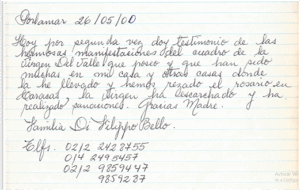 Porlamar 26/05/00
Hoy por segunda vez doy testimonio de las
hermosas manifestaciones del cuadro de la
Virgen del Valle que poseo y que han sido
muchas en mi casa y otras casas donde
la he llevado y hemos rezado el rosario en
Caracas, la Virgen ha escarchado y ha
realizado sanaciones. Gracias Madre.
Familia Di Filippo Bello.
Tlfs. 02/2 2428755
0/4 2495457
02/2 9859447
9859237